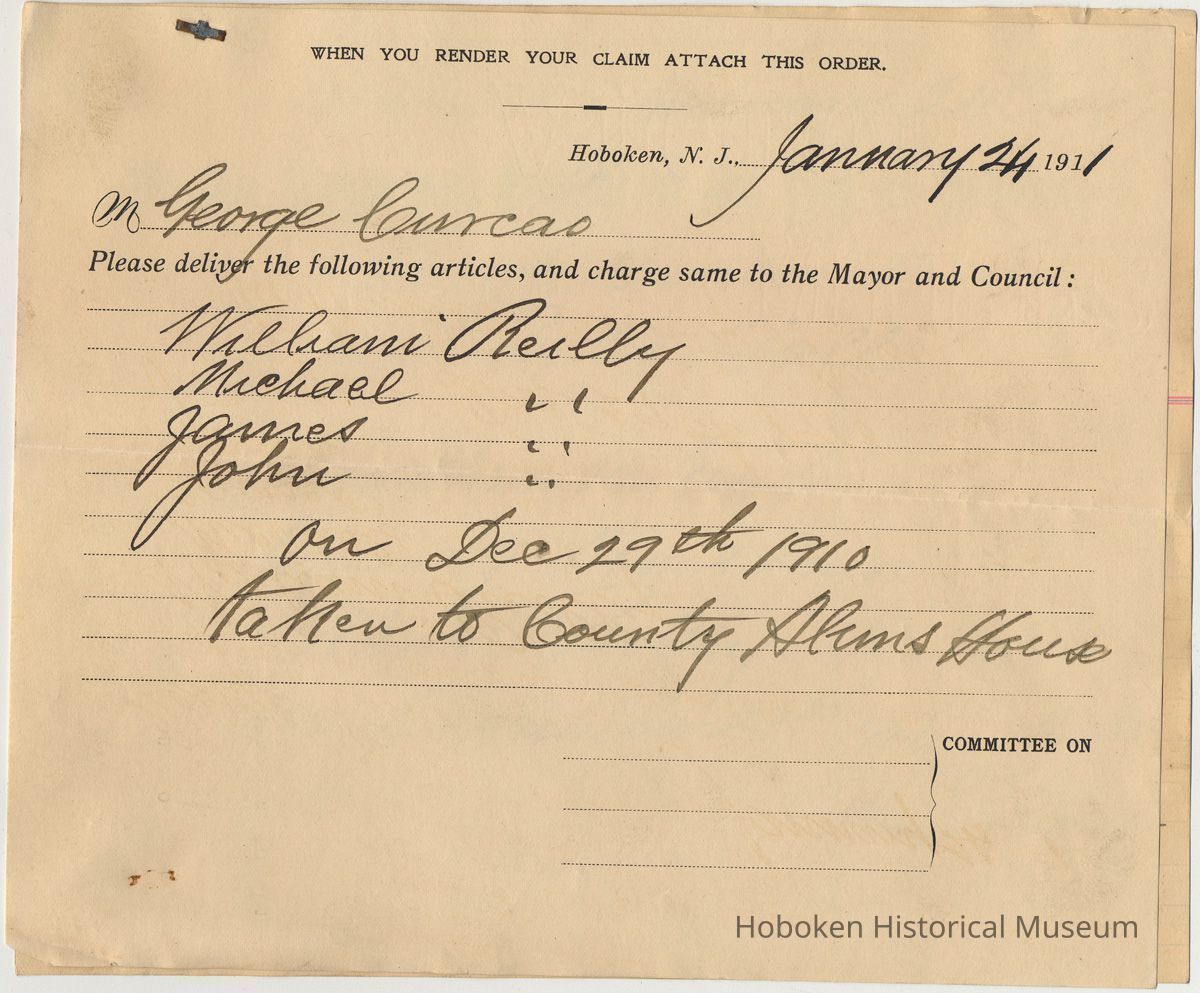 WHEN YOU RENDER YOUR CLAIM ATTACH THIS ORDER.
Hoboken, N. J., January 24 1911
M George Curcao
Please deliver the following articles, and charge same to the Mayor and Council:
William Reilly
Michael "
James "
John "
on Dec 29th 1910
taken to County Alms House
COMMITTEE ON
Hoboken Historical Museum